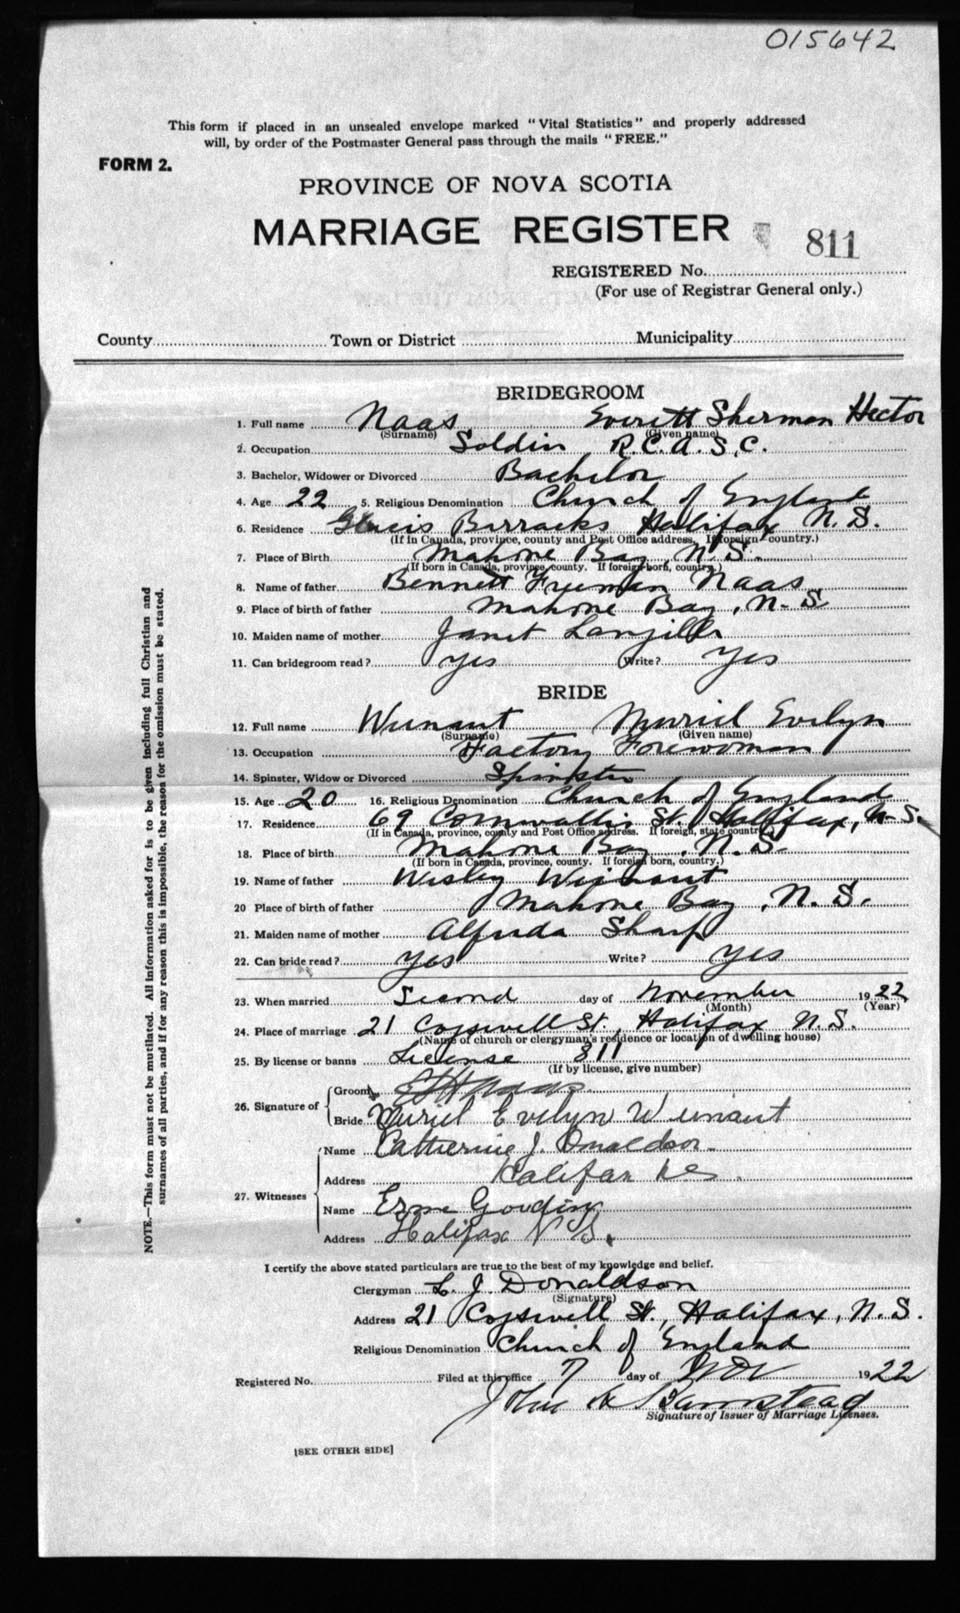 015642
This form if placed in an unsealed envelope marked "Vital Statistics" and properly addressed
will, by order of the Postmaster General pass through the mails "FREE."
FORM 2.
PROVINCE OF NOVA SCOTIA
MARRIAGE REGISTER
811
REGISTERED No.
(For use of Registrar General only.)
County Town or District Municipality
BRIDEGROOM
1. Full name Naas Everett Sherman Hector
(Surname) (Given name)
2. Occupation Soldier R.C.A.S.C.
3. Bachelor, Widower or Divorced Bachelor
4. Age 22 5. Religious Denomination Church of England
6. Residence Glacis Barracks Halifax N.S.
(If in Canada, province, county and Post Office address. If foreign country.)
7. Place of Birth Mahone Bay N.S.
(If born in Canada, province, county. If foreign born, country.)
8. Name of father Bennett Freeman Naas
9. Place of birth of father Mahone Bay, N.S
10. Maiden name of mother Janet Langille
11. Can bridegroom read? yes Write? yes
BRIDE
12. Full name Weinaut Muriel Evelyn
(Surname) (Given name)
13. Occupation Factory Forewoman
14. Spinster, Widow or Divorced Spinster
15. Age 20 16. Religious Denomination Church of England
17. Residence 69 Cornwallis St. Halifax, N.S.
(If in Canada, province, county and Post Office address. If foreign, state country)
18. Place of birth Mahone Bay, N.S.
(If born in Canada, province, county. If foreign born, country.)
19. Name of father Wesley Weinaut
20 Place of birth of father Mahone Bay, N.S.
21. Maiden name of mother Alfreda Sharp
22. Can bride read? yes Write? yes
23. When married Second day of November 1922
(Month) (Year)
24. Place of marriage 21 Cogswell St., Halifax N.S.
(Name of church or clergyman's residence or location of dwelling house)
25. By license or banns License 811
(If by license, give number)
26. Signature of Groom Naas
Bride Muriel Evelyn Weinaut
27. Witnesses
Name Catherine J. Donaldson
Address Halifax NS.
Name Gooding
Address Halifax N S.
I certify the above stated particulars are true to the best of my knowledge and belief.
Clergyman L. J. Donaldson
(Signature)
Address 21 Cogswell St., Halifax, N.S.
Religious Denomination Church of England
Registered No. Filed at this office 7 day of Nov 1922
John
Signature of Issuer of Marriage Licenses.
[SEE OTHER SIDE]
NOTE.—This form must not be mutilated. All information asked for is to be given including full Christian and
surnames of all parties, and if for any reason this is impossible, the reason for the omission must be stated.